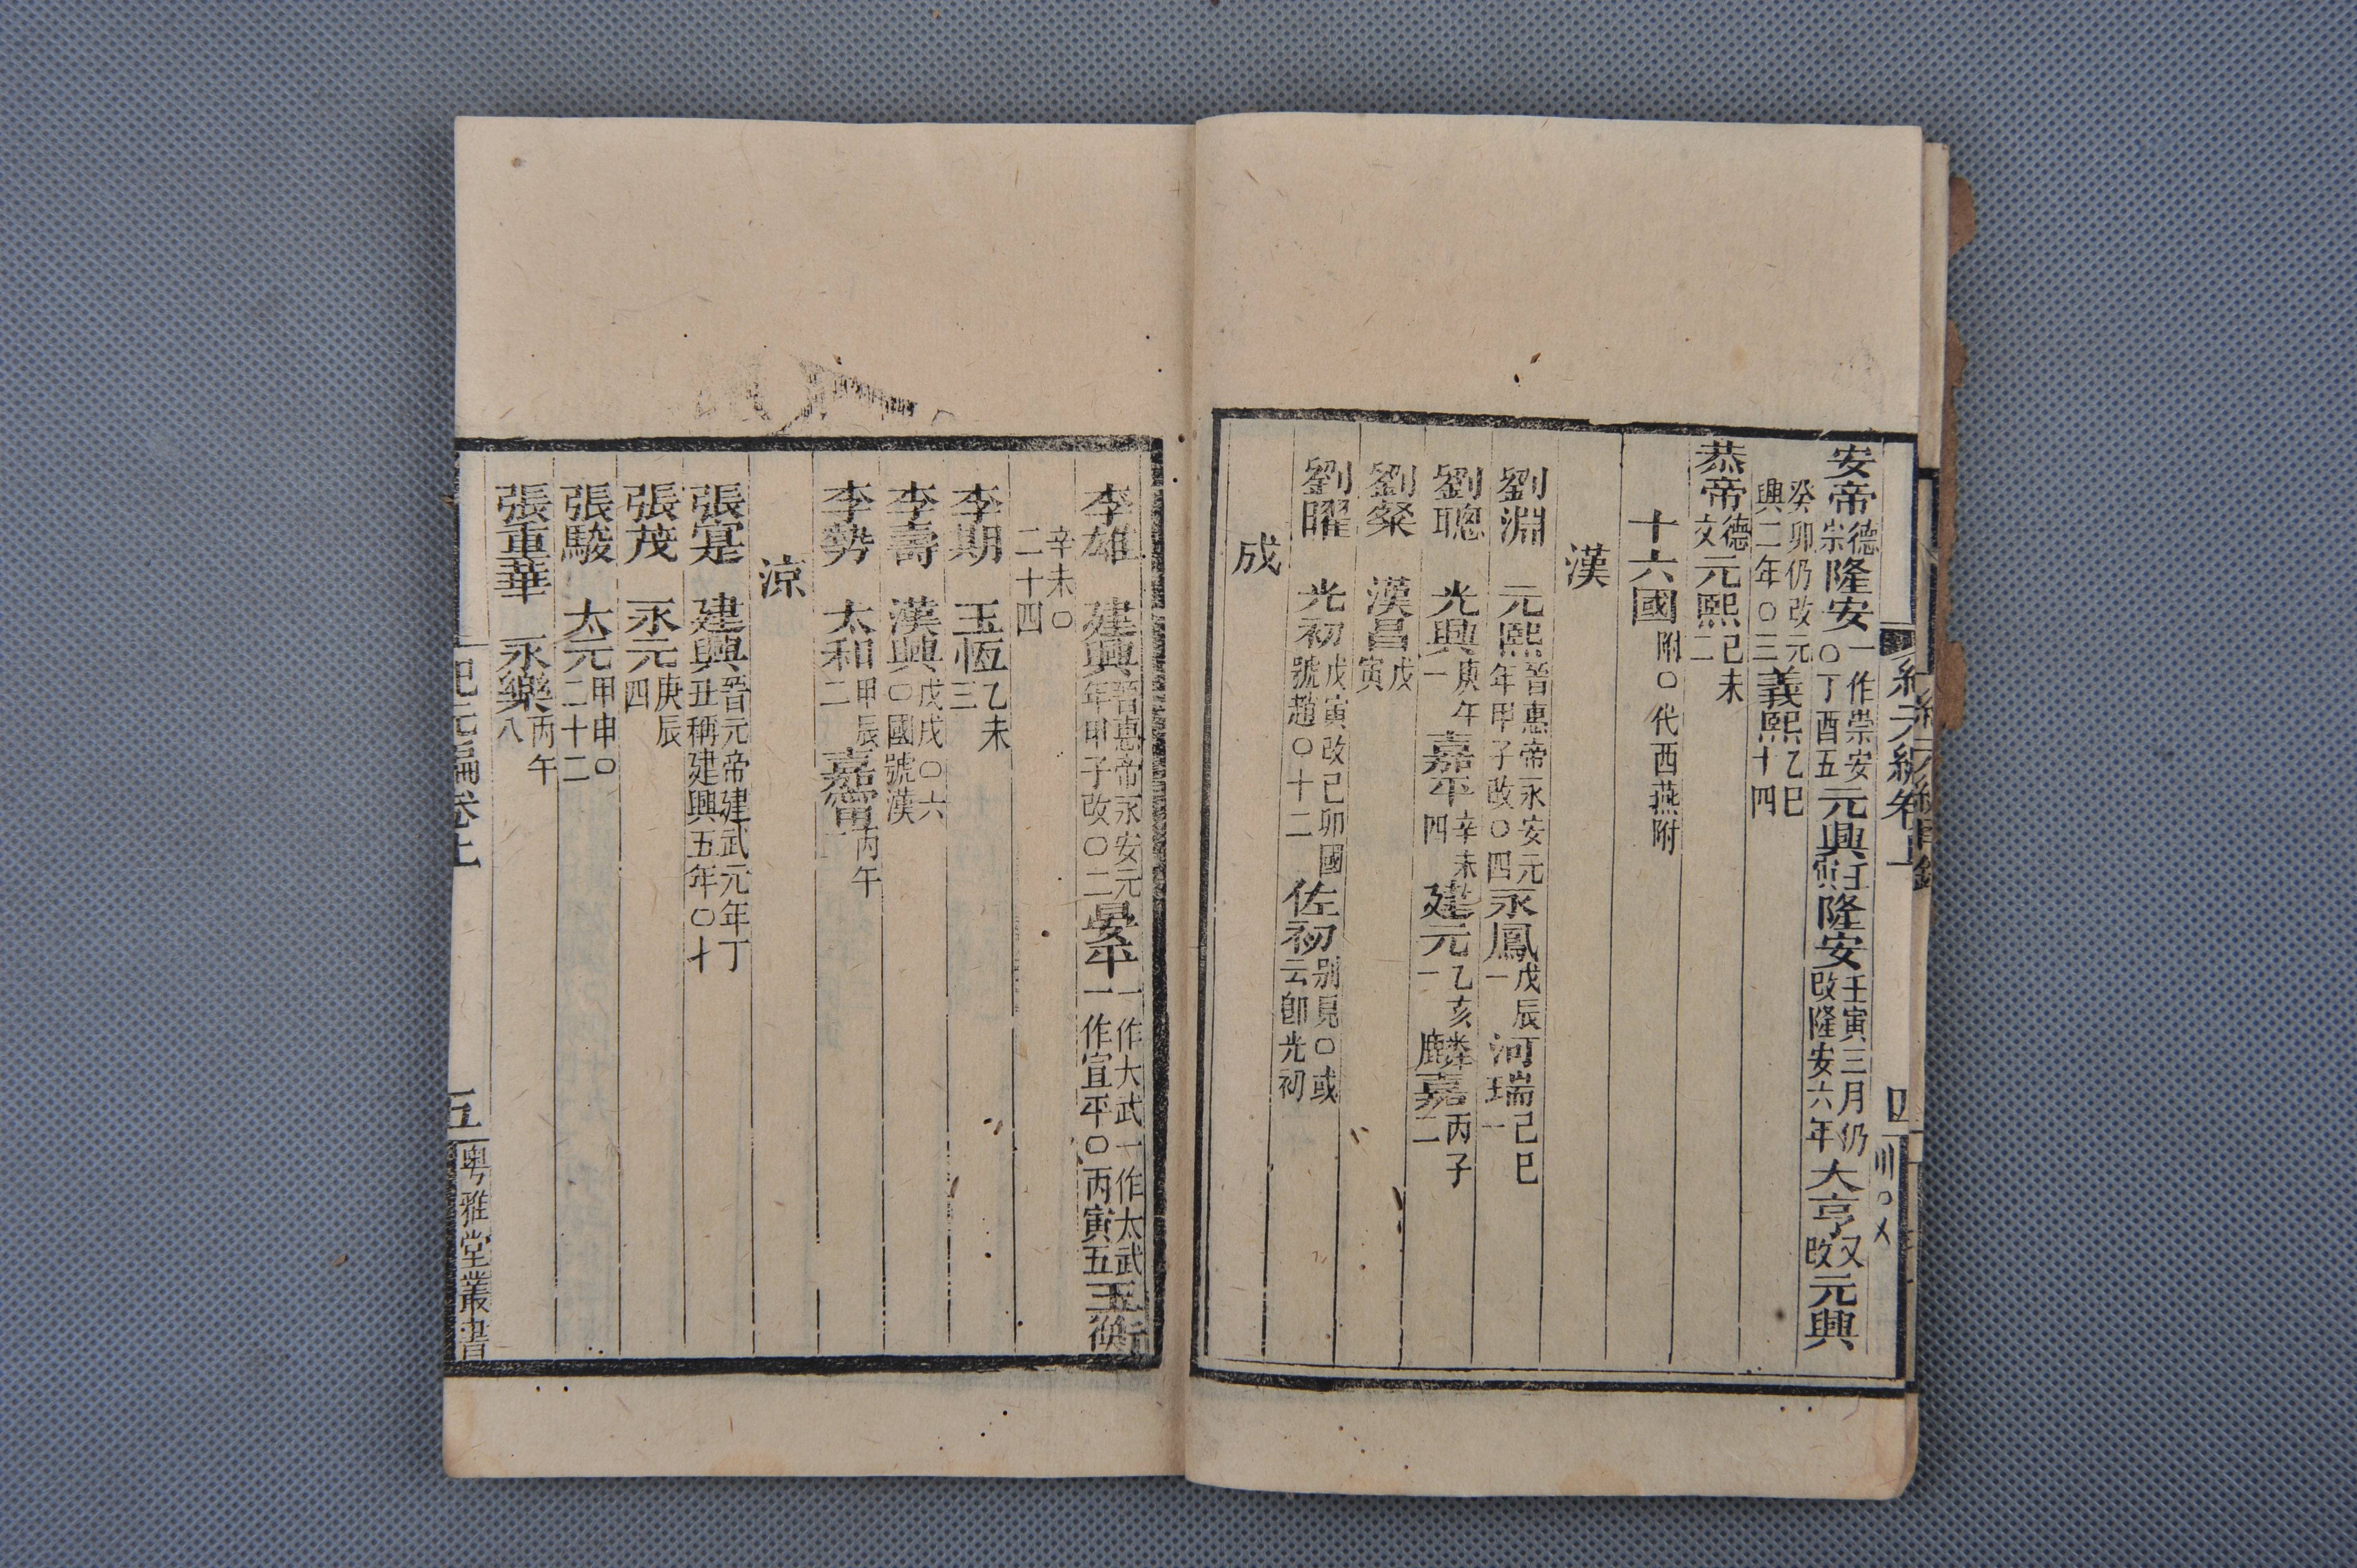 安帝德崇隆安一作崇安〇丁酉五元興狂隆安壬寅三月仍改隆安六年大亨又改元興
癸卯仍改元興二年〇三義熙乙巳十四
恭帝德文元熙己未二
十六國附〇代西燕附
漢
劉淵 元熙晉惠帝永安元年甲子改〇四永鳳戊辰一河瑞己巳一
劉聰 光興庚午一嘉平辛未四建元乙亥一麟嘉丙子二
劉粲 漢昌戊寅
劉曜 光初戊寅改己卯國號趙〇十二佐初別見〇或云卽光初
成
李雄 建興晉惠帝永安元年甲子改〇二晏平一作大武一作太武一作宜平〇丙寅五玉衡
辛未〇二十四
李期 玉恆乙未三
李壽 漢興戊戌〇六〇國號漢
李勢 太和甲辰二嘉甯丙午
涼
張寔 建興晉元帝建武元年丁丑稱建興五年〇十
張茂 永元庚辰四
張駿 太元甲申〇二十二
張重華 永樂丙午八
紀元編卷上
五
粵雅堂叢書